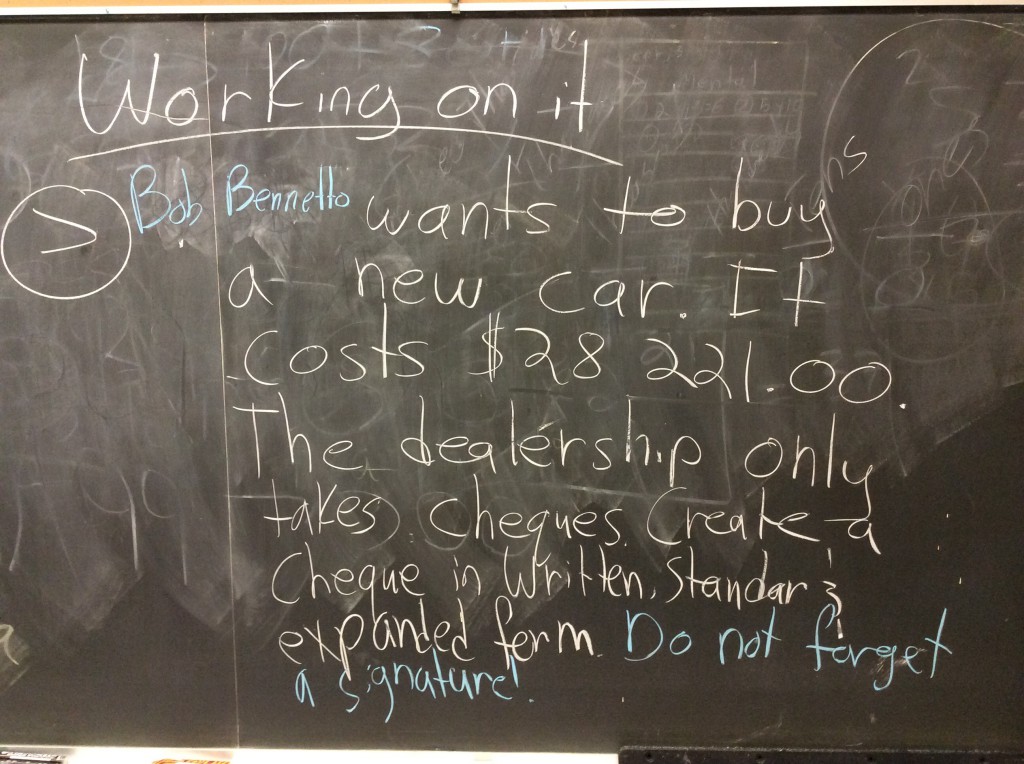 Working on it
> Bob Bennetto wants to buy
a new car. It
costs $28 221.00.
The dealership only
takes cheques. Create a
cheque in written, standar &
expanded form. Do not forget
a signature!